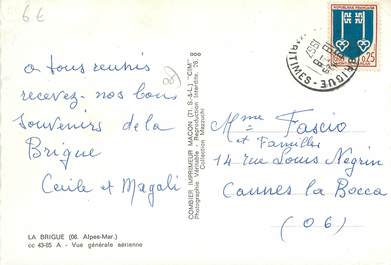 6€
à tous réunis
recevez nos bons
souvenirs de la
Brigue
Cecile et Magali
LA BRIGUE (06. Alpes-Mar.)
cc 43-85 A - Vue générale aérienne
COMBIER IMPRIMEUR MACON (71. S.-&-L.) "CIM"
Photographie Véritable - Reproduction Interdite
Collection Mazzuchi
RÉPUBLIQUE FRANÇAISE
0,25
BRIGUE
MARITIMES
Mme Fascio
et Famille
14 rue Louis Negrin
Cannes la Bocca
(06)